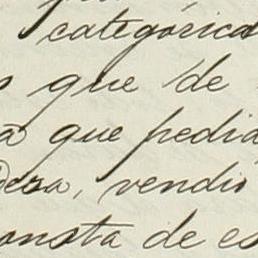 categórica
que de
que pedia
desa, vendio
onsta de es